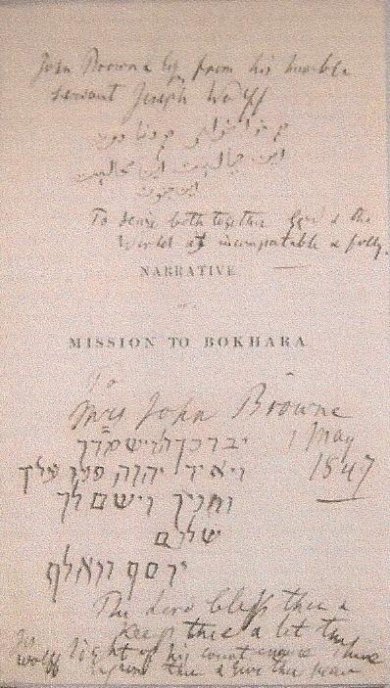 John Browne Esq from his humble
servant Joseph Wolff
م خدا خواهی م دنیا دون
این خیالیست این محالیست
این جنون
To desire both together God & the
World is incompatable a folly.
NARRATIVE
MISSION TO BOKHARA
To
Mrs John Browne
1 May
1847
יברכך יהוה וישמרך
ויאיר יהוה פניו עליך
וחניך וישם לך
שלום
יוסף וואלף
The Lord bless thee &
keep thee & let the
light of his countenance shine
upon thee & give thee peace
Jos
Wolff